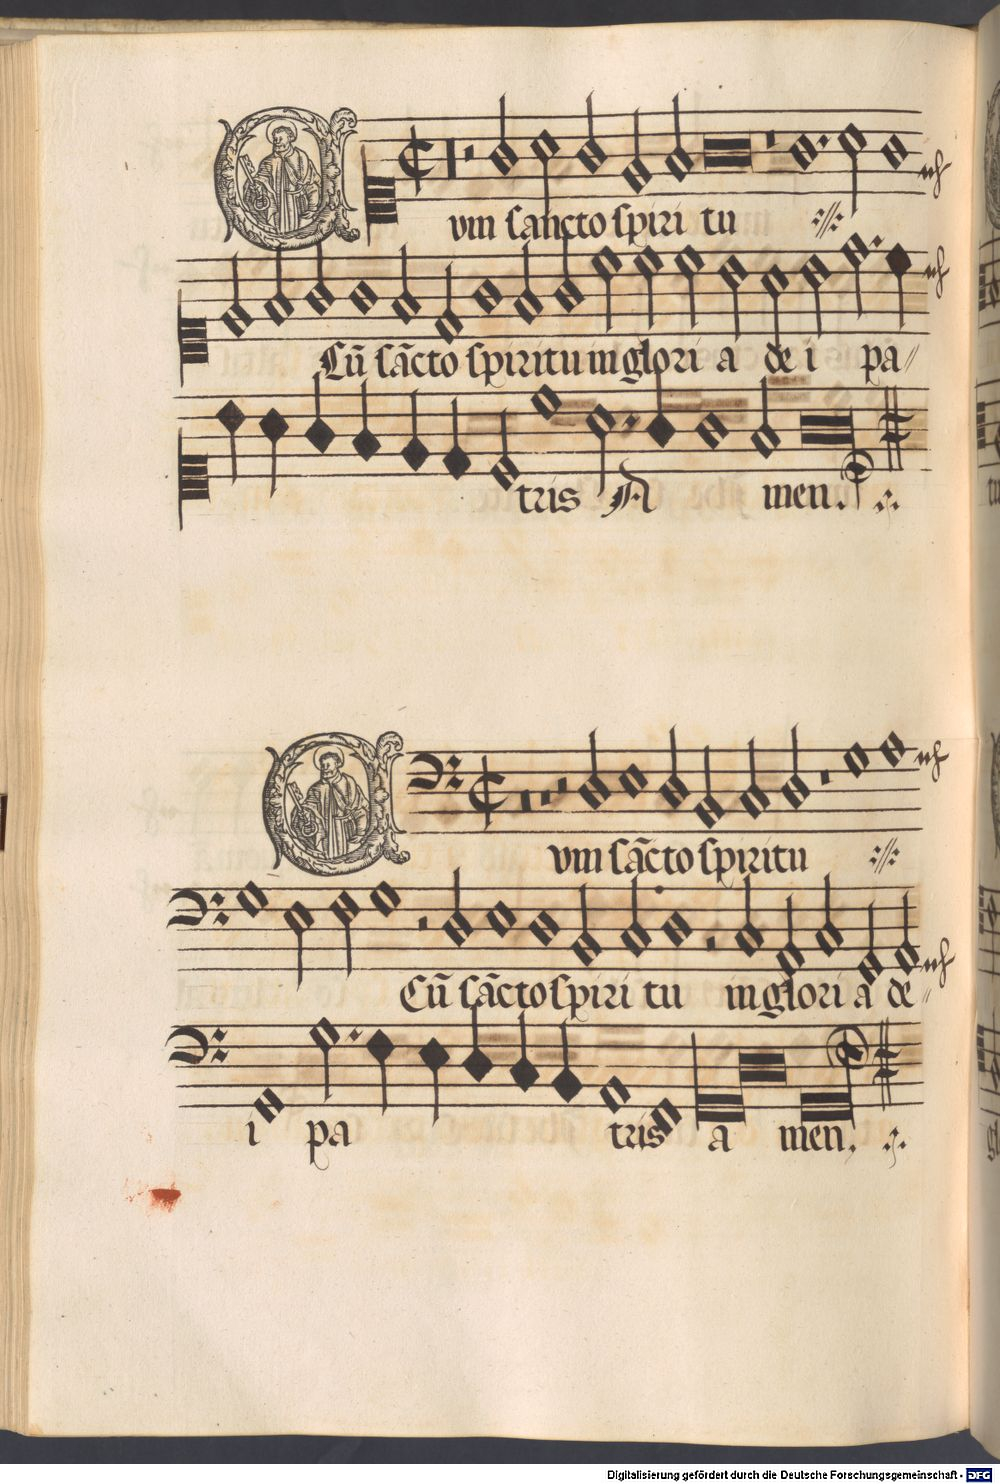 Cum sancto spiri tu
Cū sācto spiritu in glori a de i pa
tris A men.
Cum sācto spiritu
Cū sācto spiri tu in glori a de
i pa tris a men.
Digitalisierung gefördert durch die Deutsche Forschungsgemeinschaft - DFG